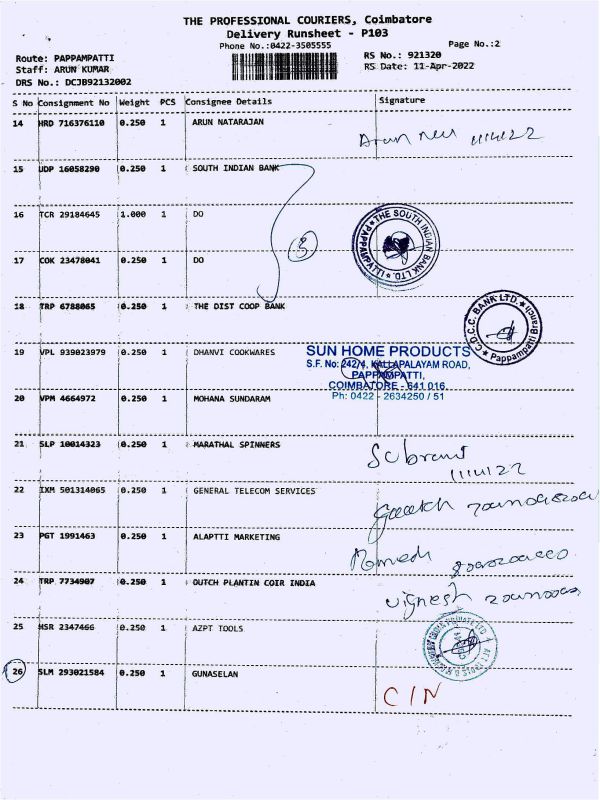 THE PROFESSIONAL COURIERS, Coimbatore
Delivery Runsheet - P103
Phone No.:0422-3505555
Page No.:2
Route: PAPPAMPATTI
RS No.: 921320
Staff: ARUN KUMAR
RS Date: 11-Apr-2022
DRS No.: DCJB92132002
S No Consignment No Weight PCS Consignee Details Signature
14 HRD 716376110 0.250 1 ARUN NATARAJAN
Arun 11/4/22
15 UDP 16058290 0.250 1 SOUTH INDIAN BANK
16 TCR 29184645 1.000 1 DO
3
THE SOUTH INDIAN BANK LTD. PAPPAMPATTI
17 COK 23478041 0.250 1 DO
18 TRP 6788065 0.250 1 THE DIST COOP BANK
C.D.C.C. BANK LTD. Pappampatti Branch
19 VPL 939023979 0.250 1 DHANVI COOKWARES
SUN HOME PRODUCTS
S.F. No: 242/4, KALLAPALAYAM ROAD,
PAPPAMPATTI,
COIMBATORE - 641 016.
Ph: 0422 - 2634250 / 51
20 VPM 4664972 0.250 1 MOHANA SUNDARAM
21 SLP 10014323 0.250 1 MARATHAL SPINNERS
11/4/22
22 IXM 501314065 0.250 1 GENERAL TELECOM SERVICES
23 PGT 1991463 0.250 1 ALAPTTI MARKETING
24 TRP 7734907 0.250 1 DUTCH PLANTIN COIR INDIA
Vignesh
25 HSR 2347466 0.250 1 AZPT TOOLS
26 SLM 293021584 0.250 1 GUNASELAN
C/N